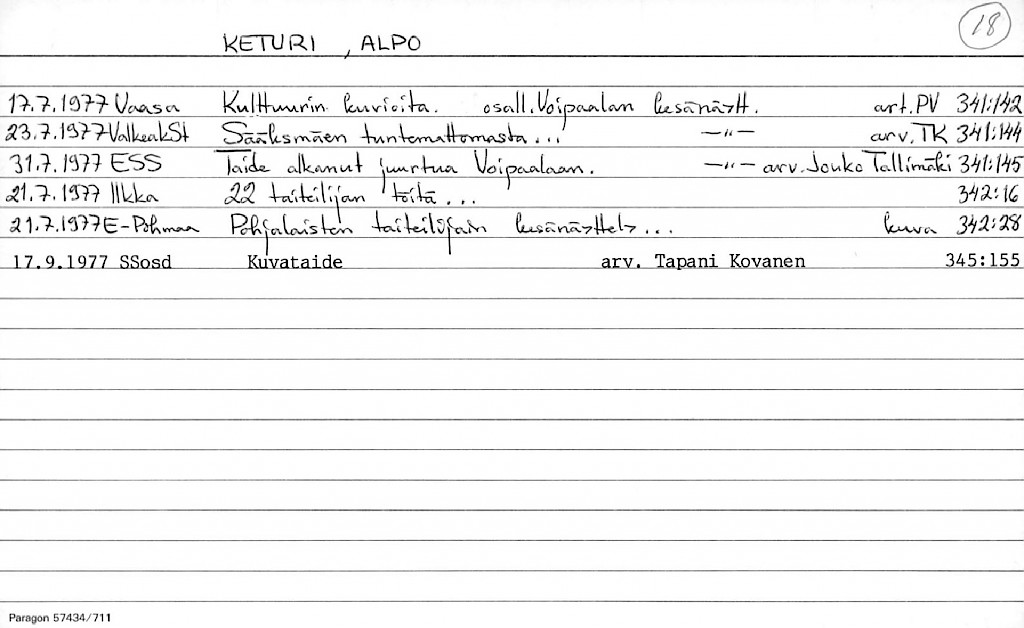 18
KETURI, ALPO
17.7.1977 Vaasa Kulttuurin kuvioita. osall. Voipaalan kesänäytt. art. PV 341:142
23.7.1977 ValkeakSt Sääksmäen tuntemattomasta... —"— arv. TK 341:144
31.7.1977 ESS Taide alkanut juurtua Voipaalaan. —"— arv. Jouko Tallimäki 341:145
21.7.1977 Ilkka 22 taiteilijan töitä... 342:16
21.7.1977 E-Pohmaa Pohjalaisten taiteilijain kesänäyttely... kuva 342:28
17.9.1977 SSosd Kuvataide arv. Tapani Kovanen 345:155
Paragon 57434/711